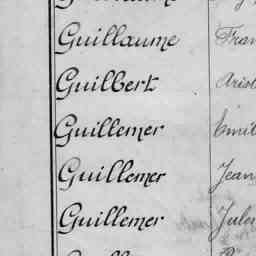 Guillaume Fran
Guilbert Arist
Guillemer Emil
Guillemer Jean
Guillemer Jules